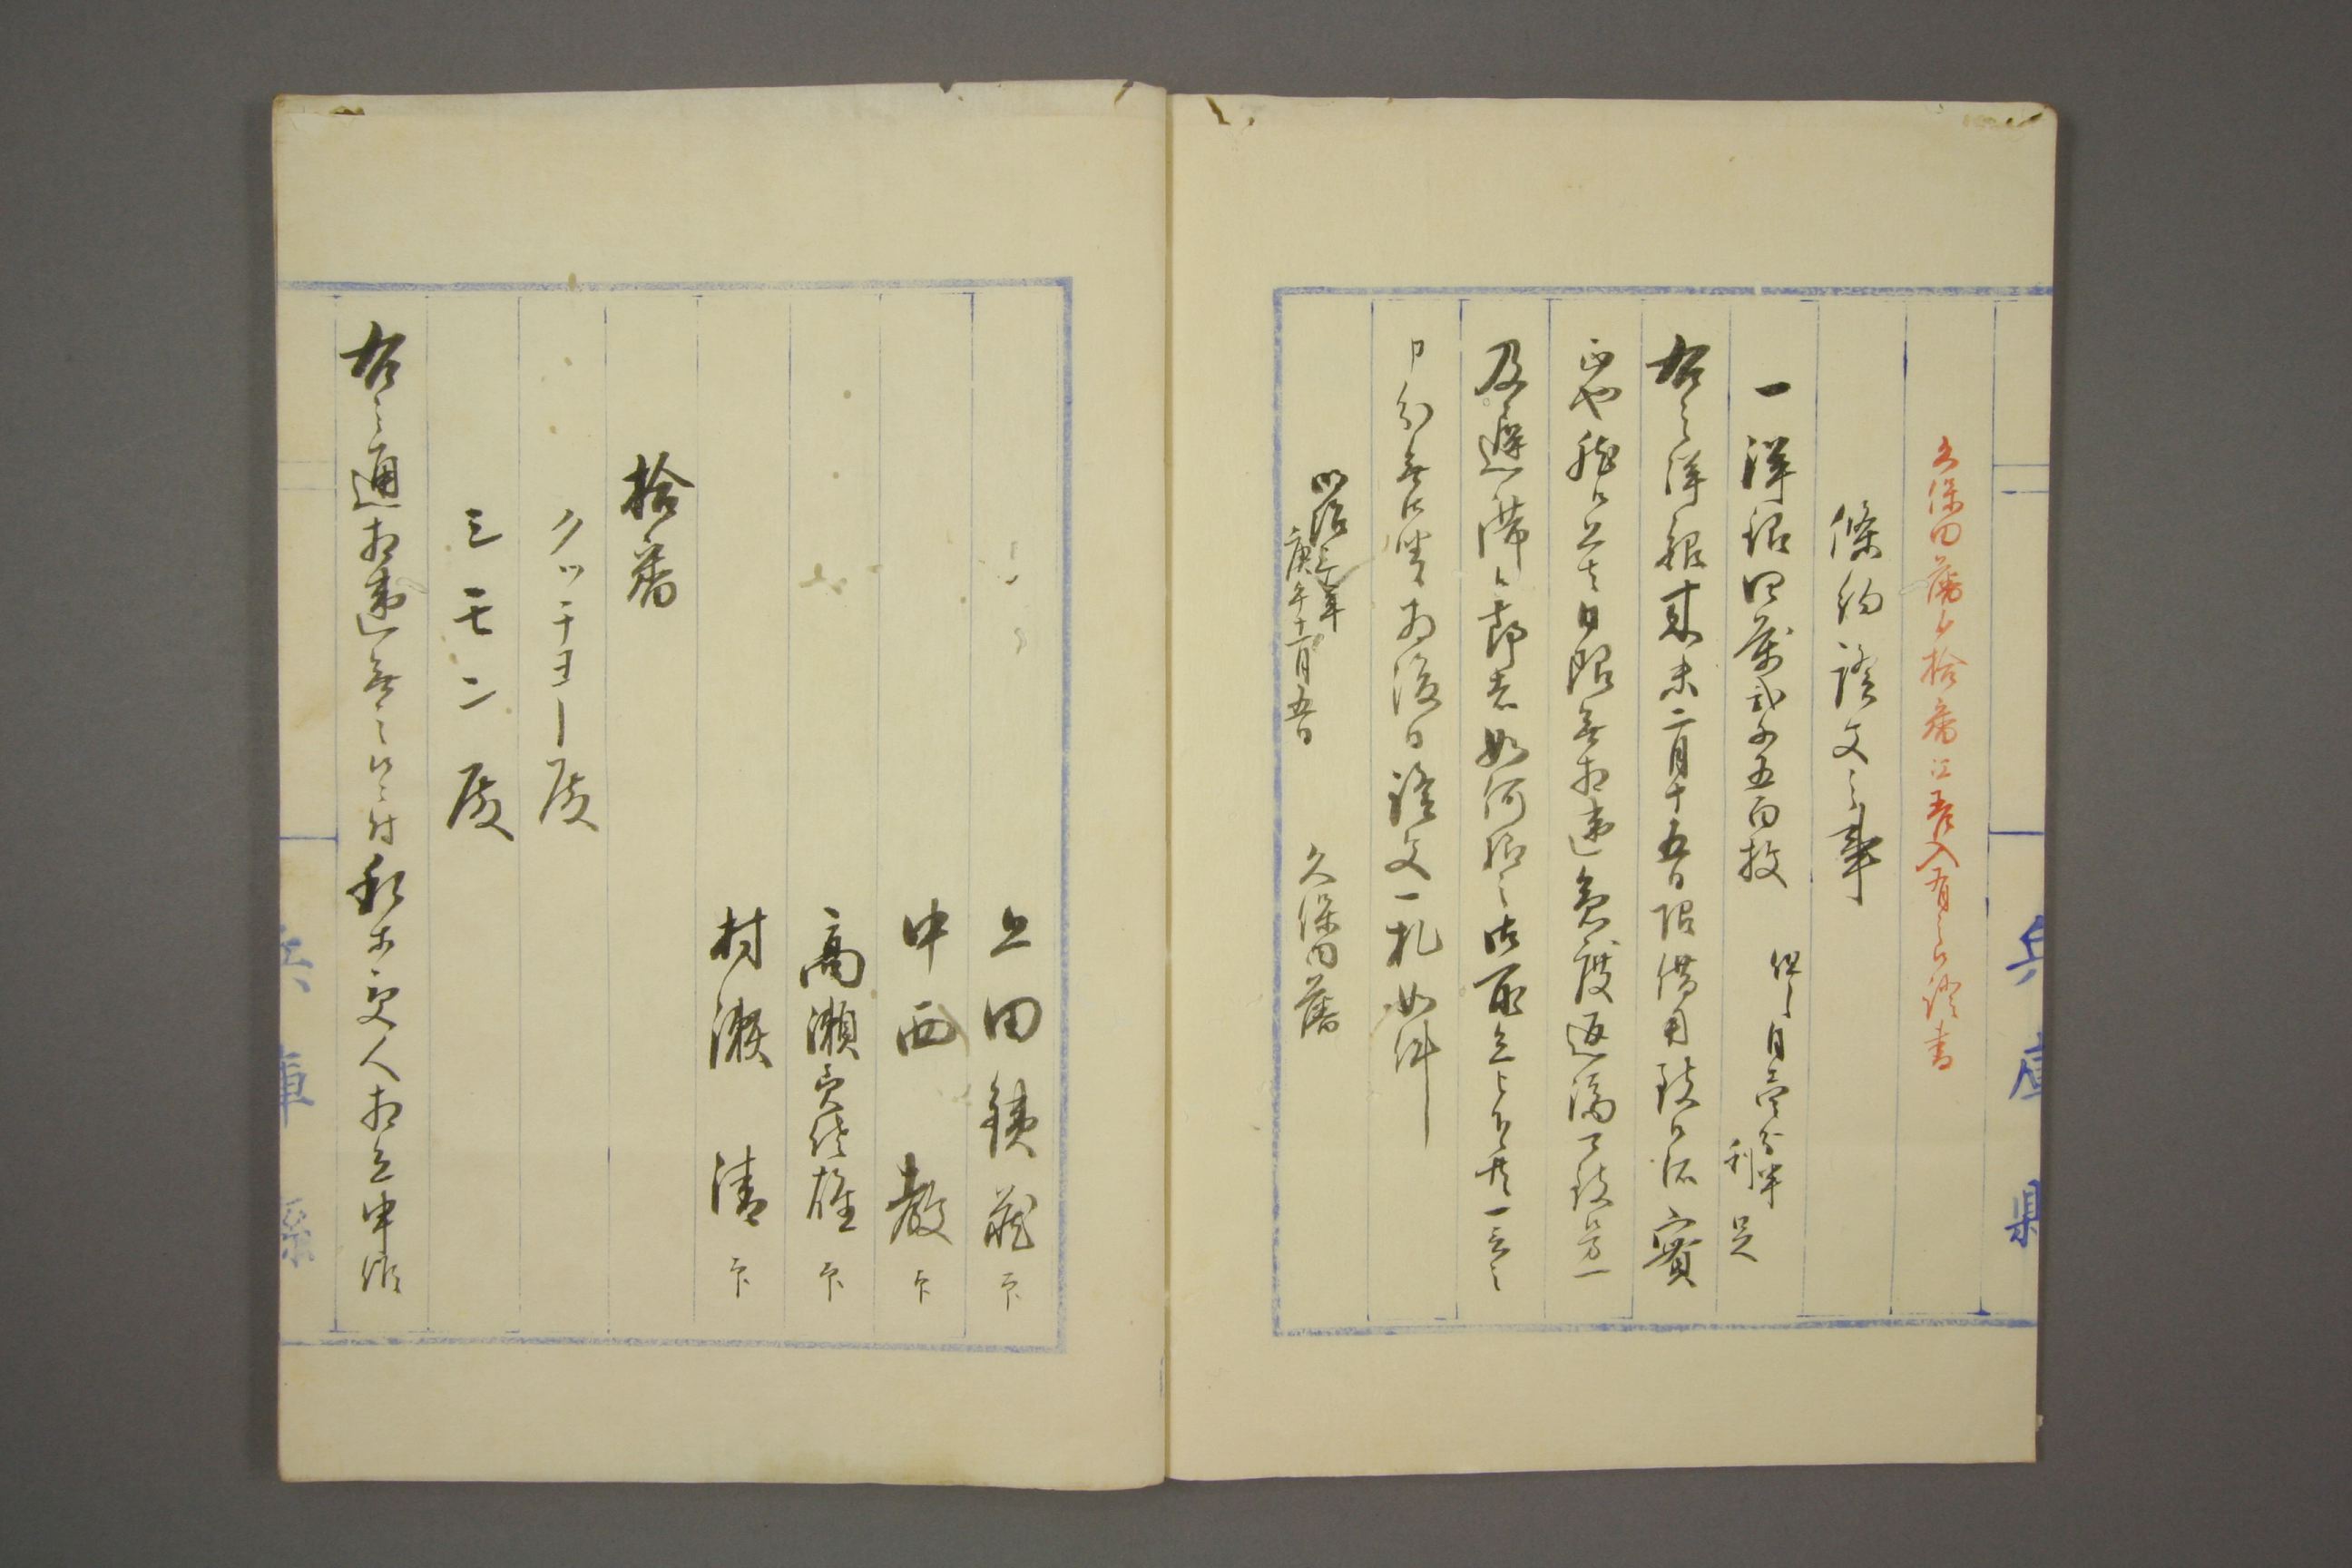 兵庫県
久保田藩ゟ拾番江差入有之候證書
條約證文之事
一洋銀四萬弐千五百枚 但シ月壱分半利足
右之洋銀来未二月十五日限借用致候処實
正也然ル上者日限無相違急度返済可致万一
及遅滞候節者如何様之御取立ニ相成候共一言之
申分無御座候為後日證文一札如件
明治三年庚午十二月五日 久保田藩
上田鉄蔵 印
中西 教 印
高瀬 雄 印
村瀬 清 印
拾番
クッチヨー殿
シモン殿
右之通相違無之候ニ付私共受人相立申候
兵庫縣